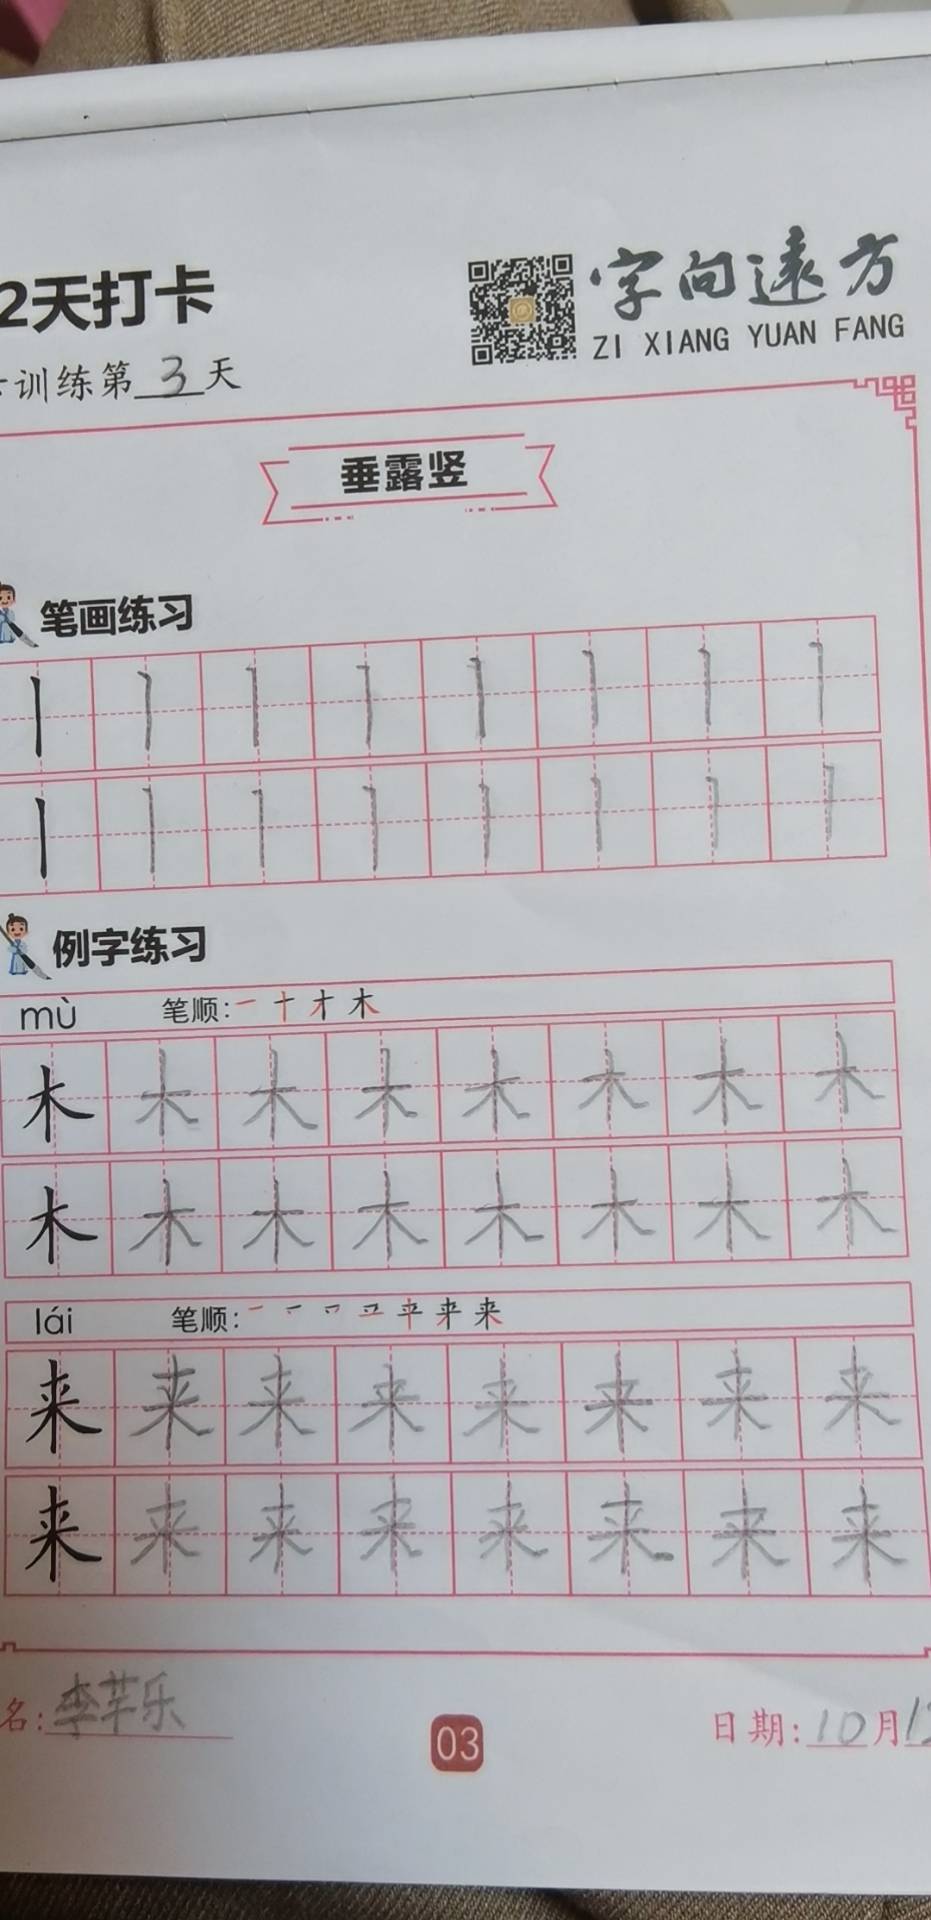 2天打卡
字向遠方
ZI XIANG YUAN FANG
训练第3天
垂露竖
笔画练习
丨丨丨丨丨丨丨丨
丨丨丨丨丨丨丨丨
例字练习
mù 笔顺:一十才木
木木木木木木木木
木木木木木木木木
lái 笔顺:
来来来来来来来来
来来来来来来来来
名:李芊乐
03
日期:10月12